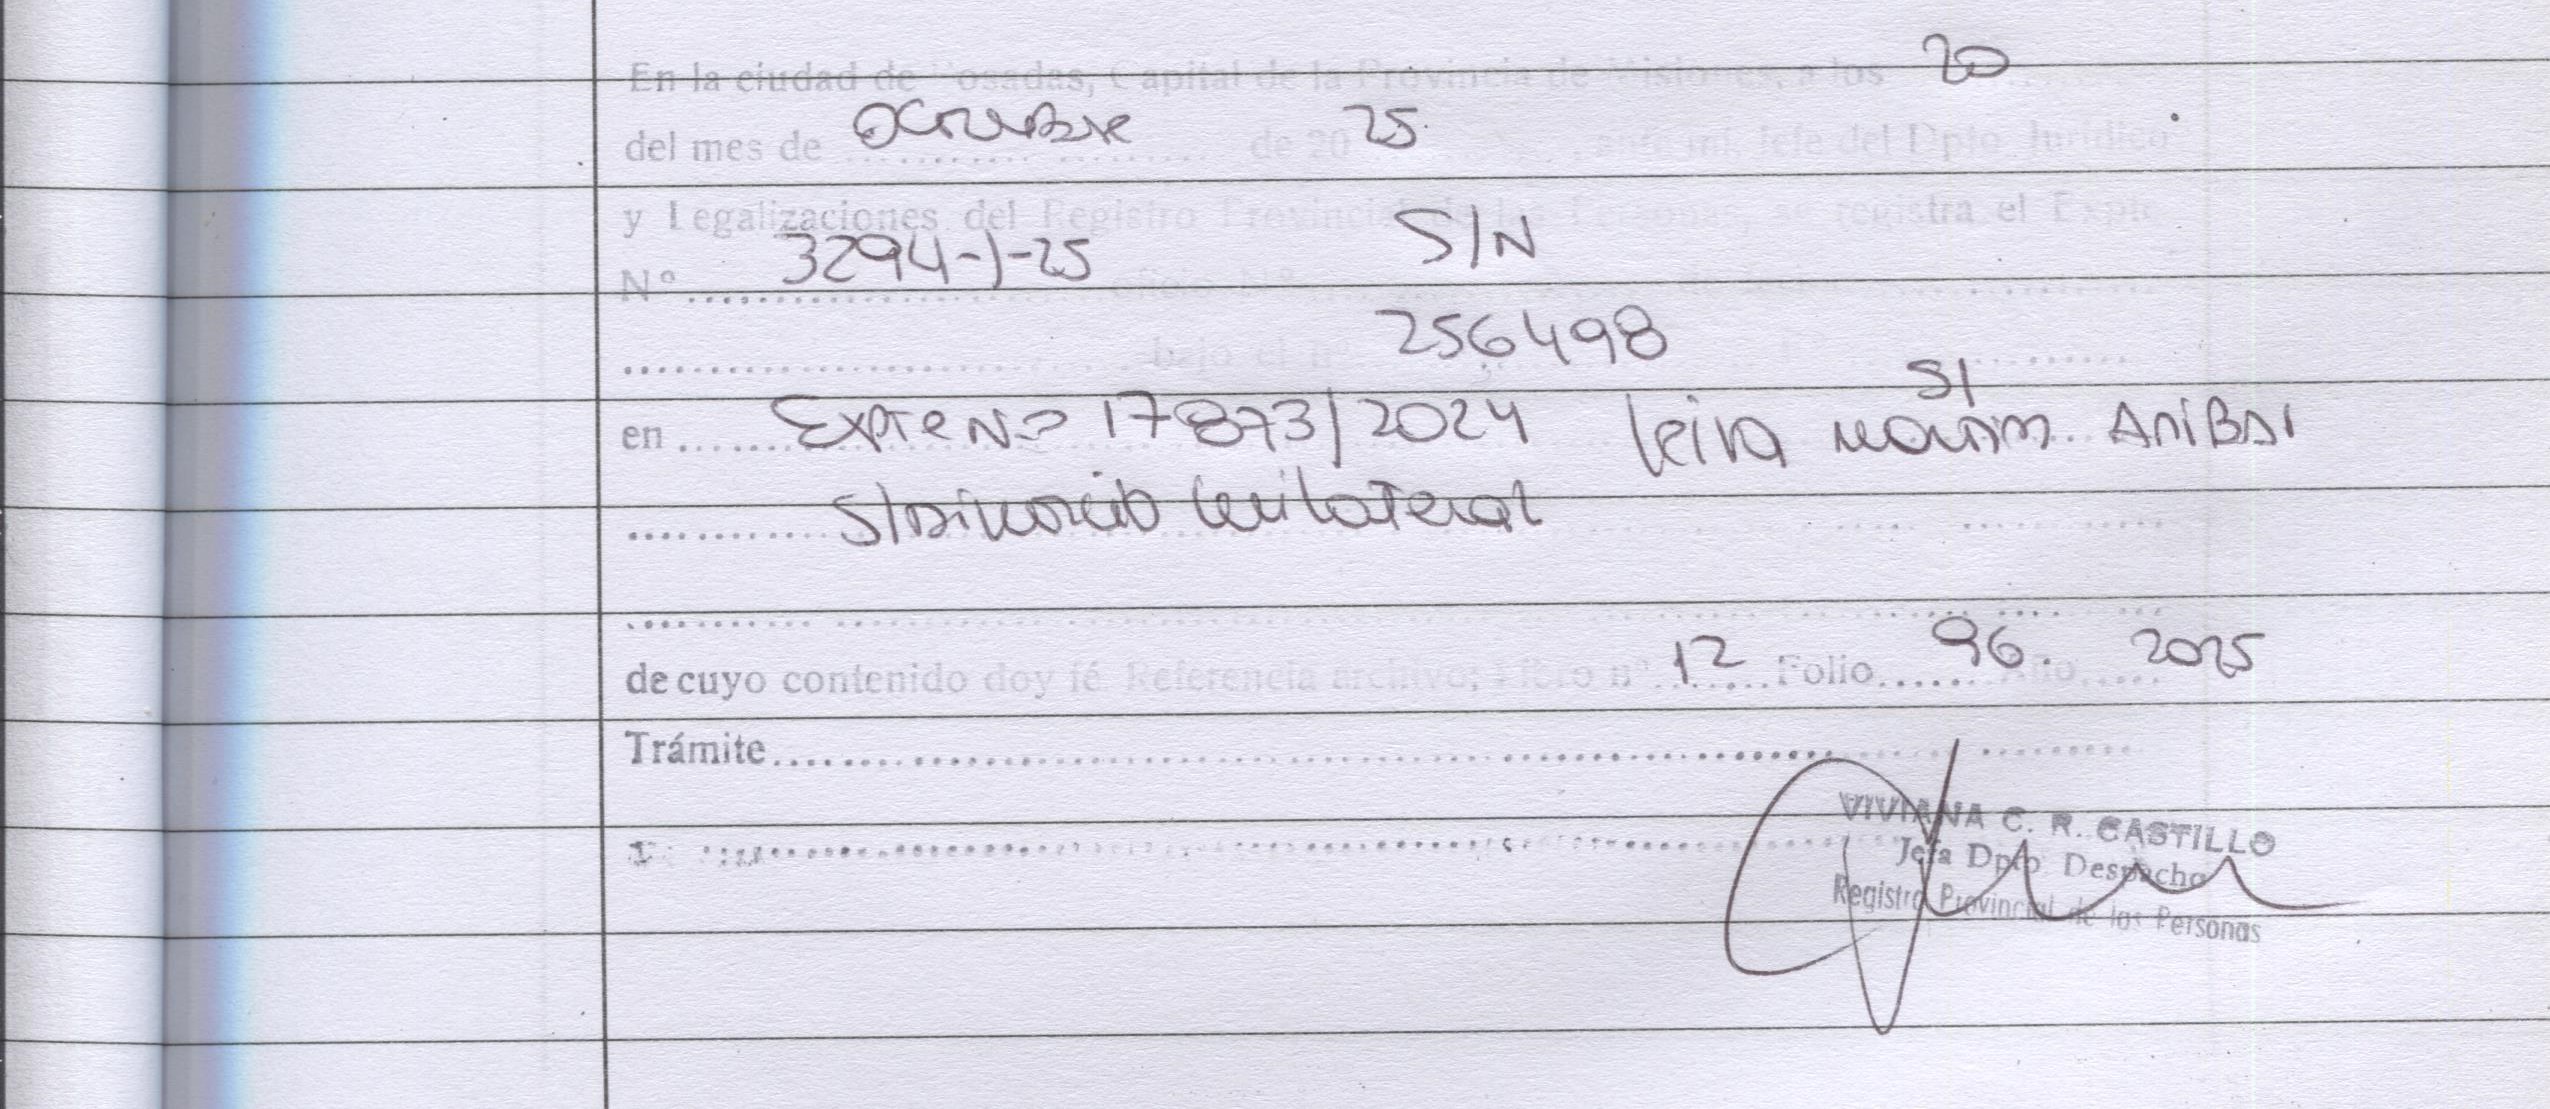 En la ciudad de Posadas, Capital de la Provincia de Misiones, a los 20
del mes de Octubre de 20 25. ante mí, Jefe del Dpto. Jurídico
y Legalizaciones del Registro Provincial de las Personas, se registra el Expte.
Nº 3294-J-25 S/N
bajo el nº 256498
en Expte Nº 17873/2024 leiva Aníbal
S/Divorcio Unilateral
de cuyo contenido doy fé. Referencia archivo; Libro nº 12 Folio 96. Año 2025
Trámite
VIVIANA C. R. CASTILLO
Jefa Dpto. Despacho
Registro Provincial de las Personas